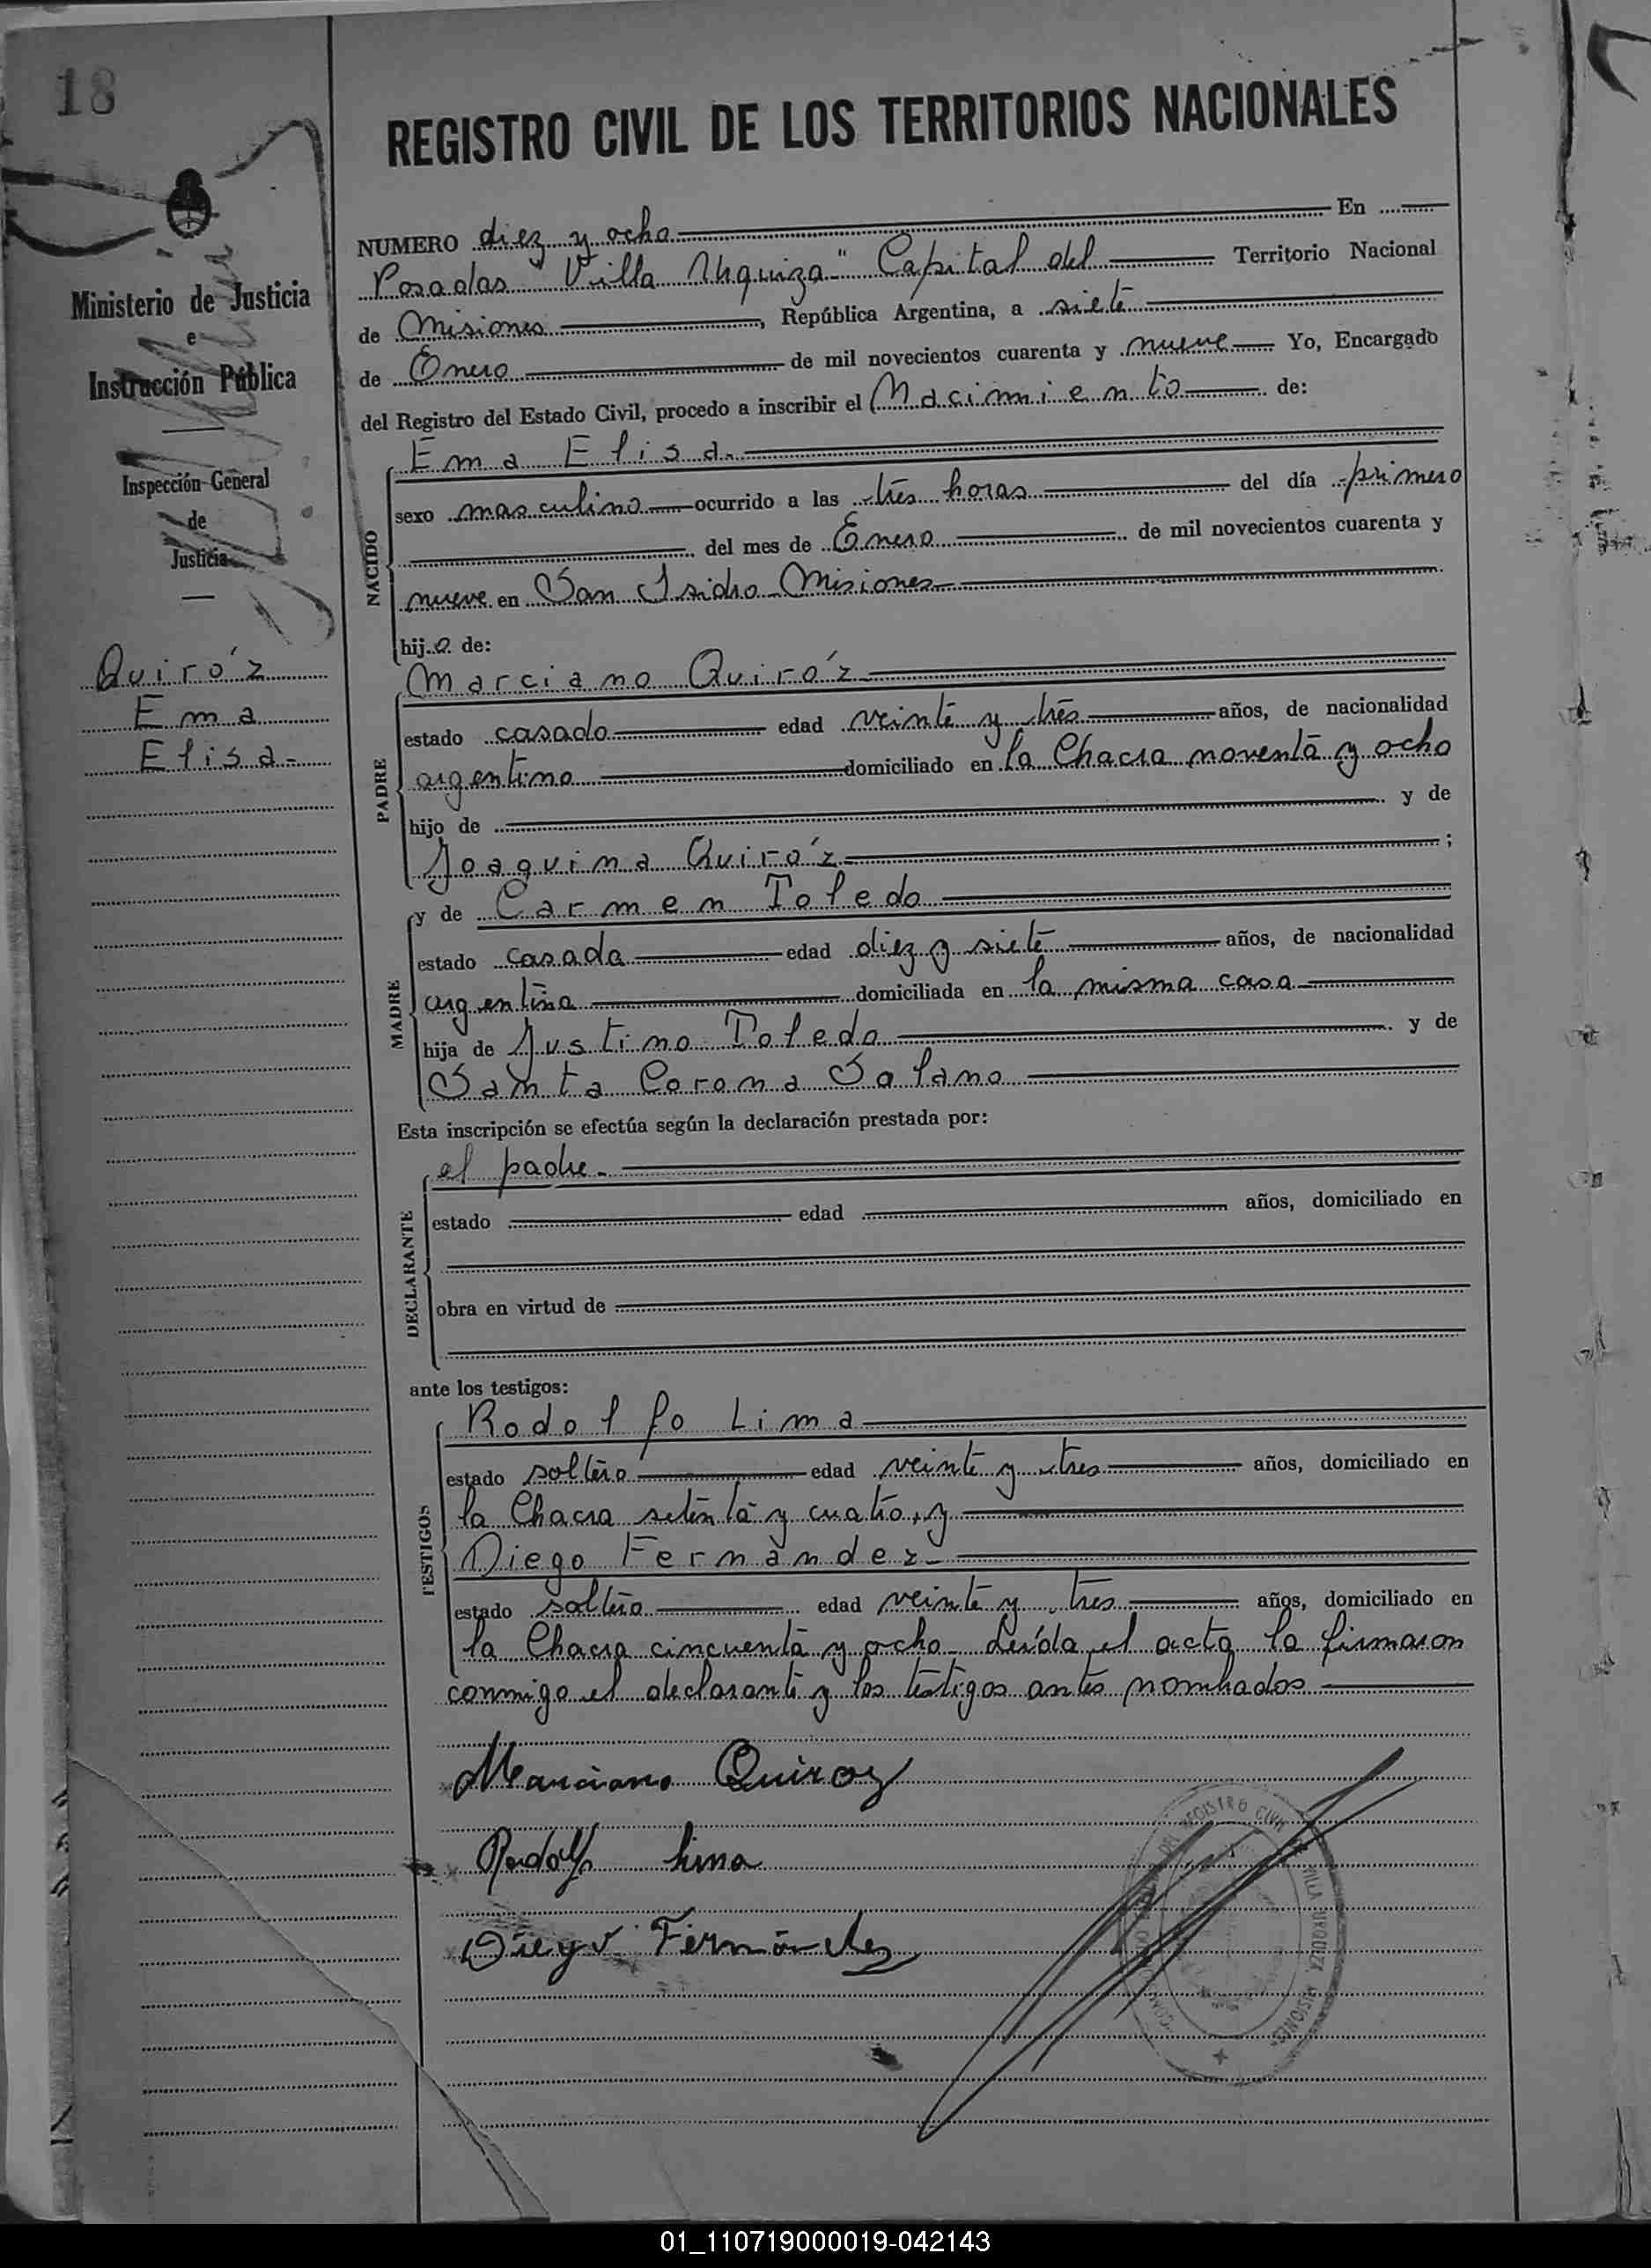 18
REGISTRO CIVIL DE LOS TERRITORIOS NACIONALES
Ministerio de Justicia
e
Instrucción Pública
Inspección General
de
Justicia
Quiró'z
Ema
Elisa.-
NUMERO diez y ocho En
Posadas "Villa Urquiza" Capital del Territorio Nacional
de Misiones, República Argentina, a siete
de Enero de mil novecientos cuarenta y nueve Yo, Encargado
del Registro del Estado Civil, procedo a inscribir el Nacimiento de:
NACIDO
Ema Elisa.
sexo masculino ocurrido a las tres horas del día primero
del mes de Enero de mil novecientos cuarenta y
nueve en San Isidro Misiones
hijo de:
PADRE
Marciano Quiró'z
estado casado edad veinte y tres años, de nacionalidad
argentino domiciliado en la Chacra noventa y ocho
hijo de y de
Joaquina Quiró'z ;
MADRE
y de Carmen Toledo
estado casada edad diez y siete años, de nacionalidad
argentina domiciliada en la misma casa
hija de Justino Toledo y de
Santa Corona Solano
Esta inscripción se efectúa según la declaración prestada por:
DECLARANTE
el padre.
estado edad años, domiciliado en
obra en virtud de
ante los testigos:
TESTIGOS
Rodolfo Lima
estado soltero edad veinte y tres años, domiciliado en
la Chacra setenta y cuatro, y
Diego Fernandez
estado soltero edad veinte y tres años, domiciliado en
la Chacra cincuenta y ocho. Leída el acta la firmaron
conmigo el declarante y los testigos antes nombrados
Marciano Quiroz
Rodolfo Lima
Diego Fernández
REGISTRO CIVIL
VILLA URQUIZA MISIONES
01_110719000019-042143